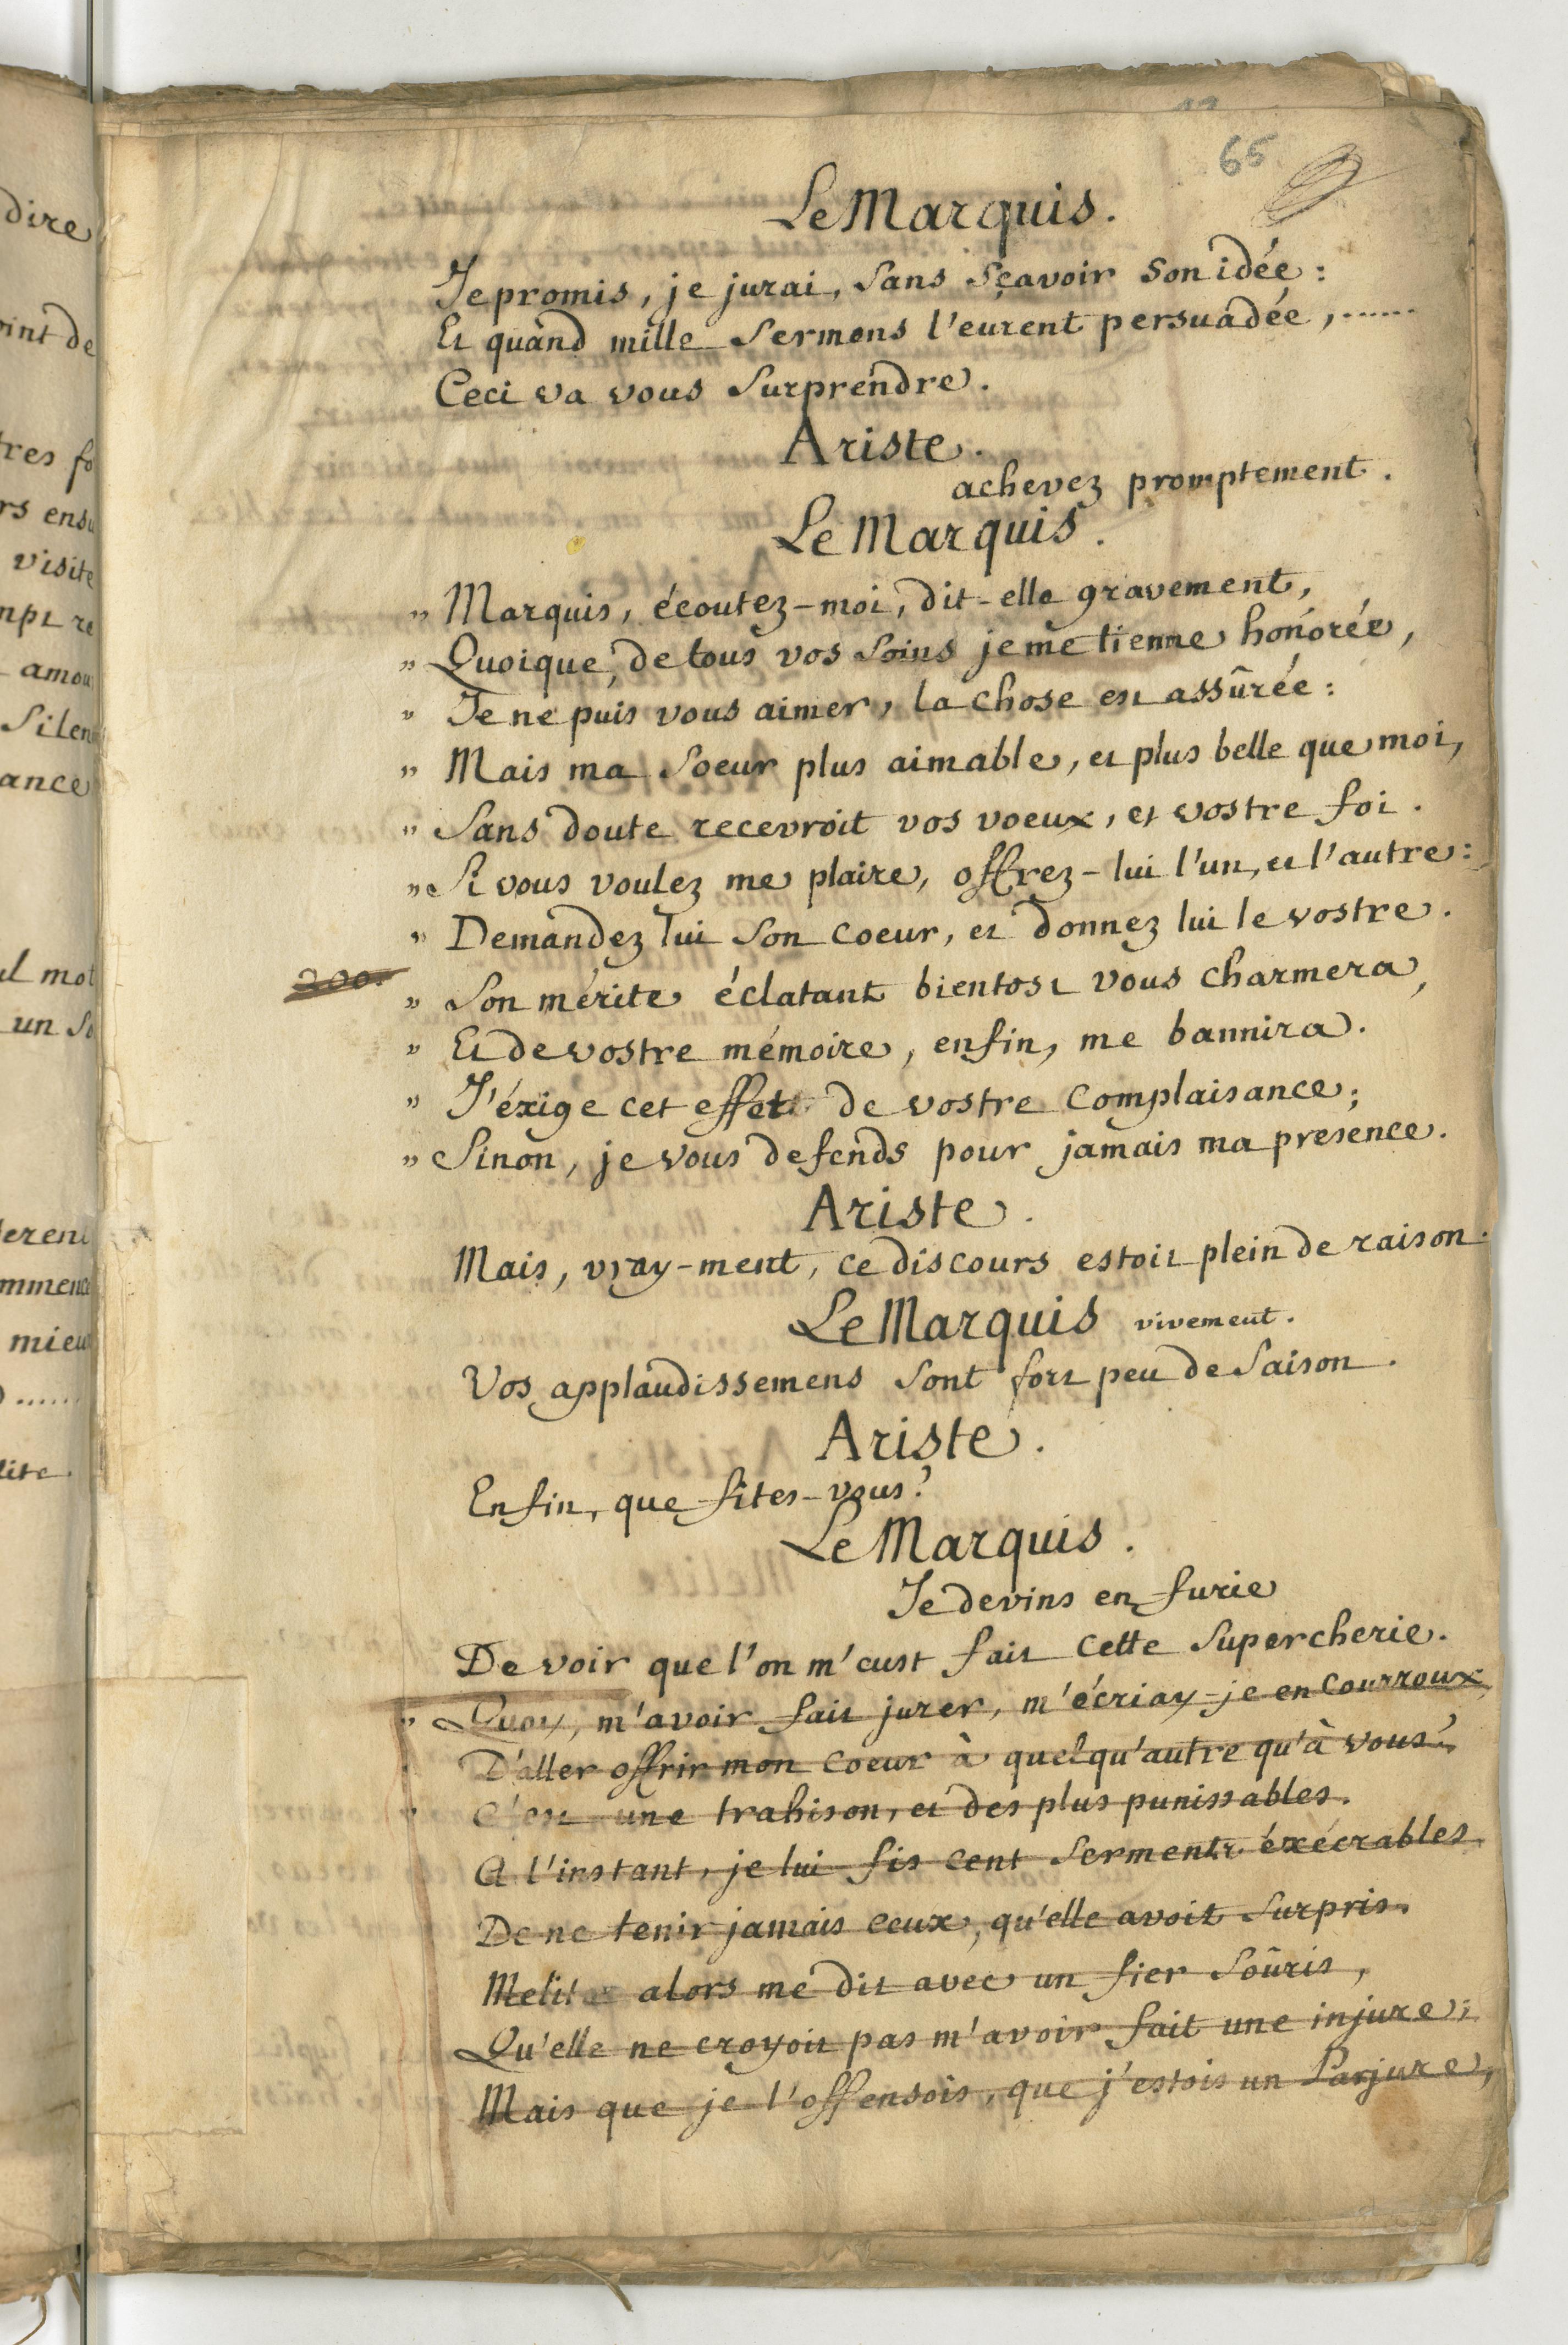 65
Le Marquis.
Je promis, je jurai, sans sçavoir son idée :
Et quand mille sermons l'eurent persuadée, ......
Ceci va vous surprendre.
Ariste.
achevez promptement.
Le Marquis.
" Marquis, écoutez-moi, dit-elle gravement,
" Quoique, de tous vos soins je me tienne honorée,
" Je ne puis vous aimer, la chose est assûrée :
" Mais ma soeur plus aimable, et plus belle que moi,
" Sans doute recevroit vos voeux, et vostre foi.
" Si vous voulez me plaire, offrez-lui l'un, et l'autre :
" Demandez lui son coeur, et donnez lui le vostre.
200.
" Son mérite éclatant bientost vous charmera,
" Et de vostre mémoire, enfin, me bannira.
" J'éxige cet effet de vostre complaisance;
" Sinon, je vous defends pour jamais ma presence.
Ariste.
Mais, vray-ment, ce discours estoit plein de raison.
Le Marquis vivement.
Vos applaudissemens sont fort peu de saison.
Ariste.
Enfin, que fites-vous?
Le Marquis.
Je devins en furie
De voir que l'on m'eust fait cette supercherie.
" Quoy, m'avoir fait jurer, m'écriay-je en courroux,
" D'aller offrir mon coeur à quelqu'autre qu'à vous?
" C'est une trahison, et des plus punissables.
A l'instant, je lui fis cent serments éxécrables
De ne tenir jamais ceux, qu'elle avoit surpris.
Melite alors me dit avec un fier soûris,
Qu'elle ne croyoit pas m'avoir fait une injure;
Mais que je l'offensois, que j'estois un Parjure,
dire
oint de
tres fo
rs ensu
visite
mpt re
amou
silen
ance
ul mot
un so
erent
mmence
mieu
......
lite.